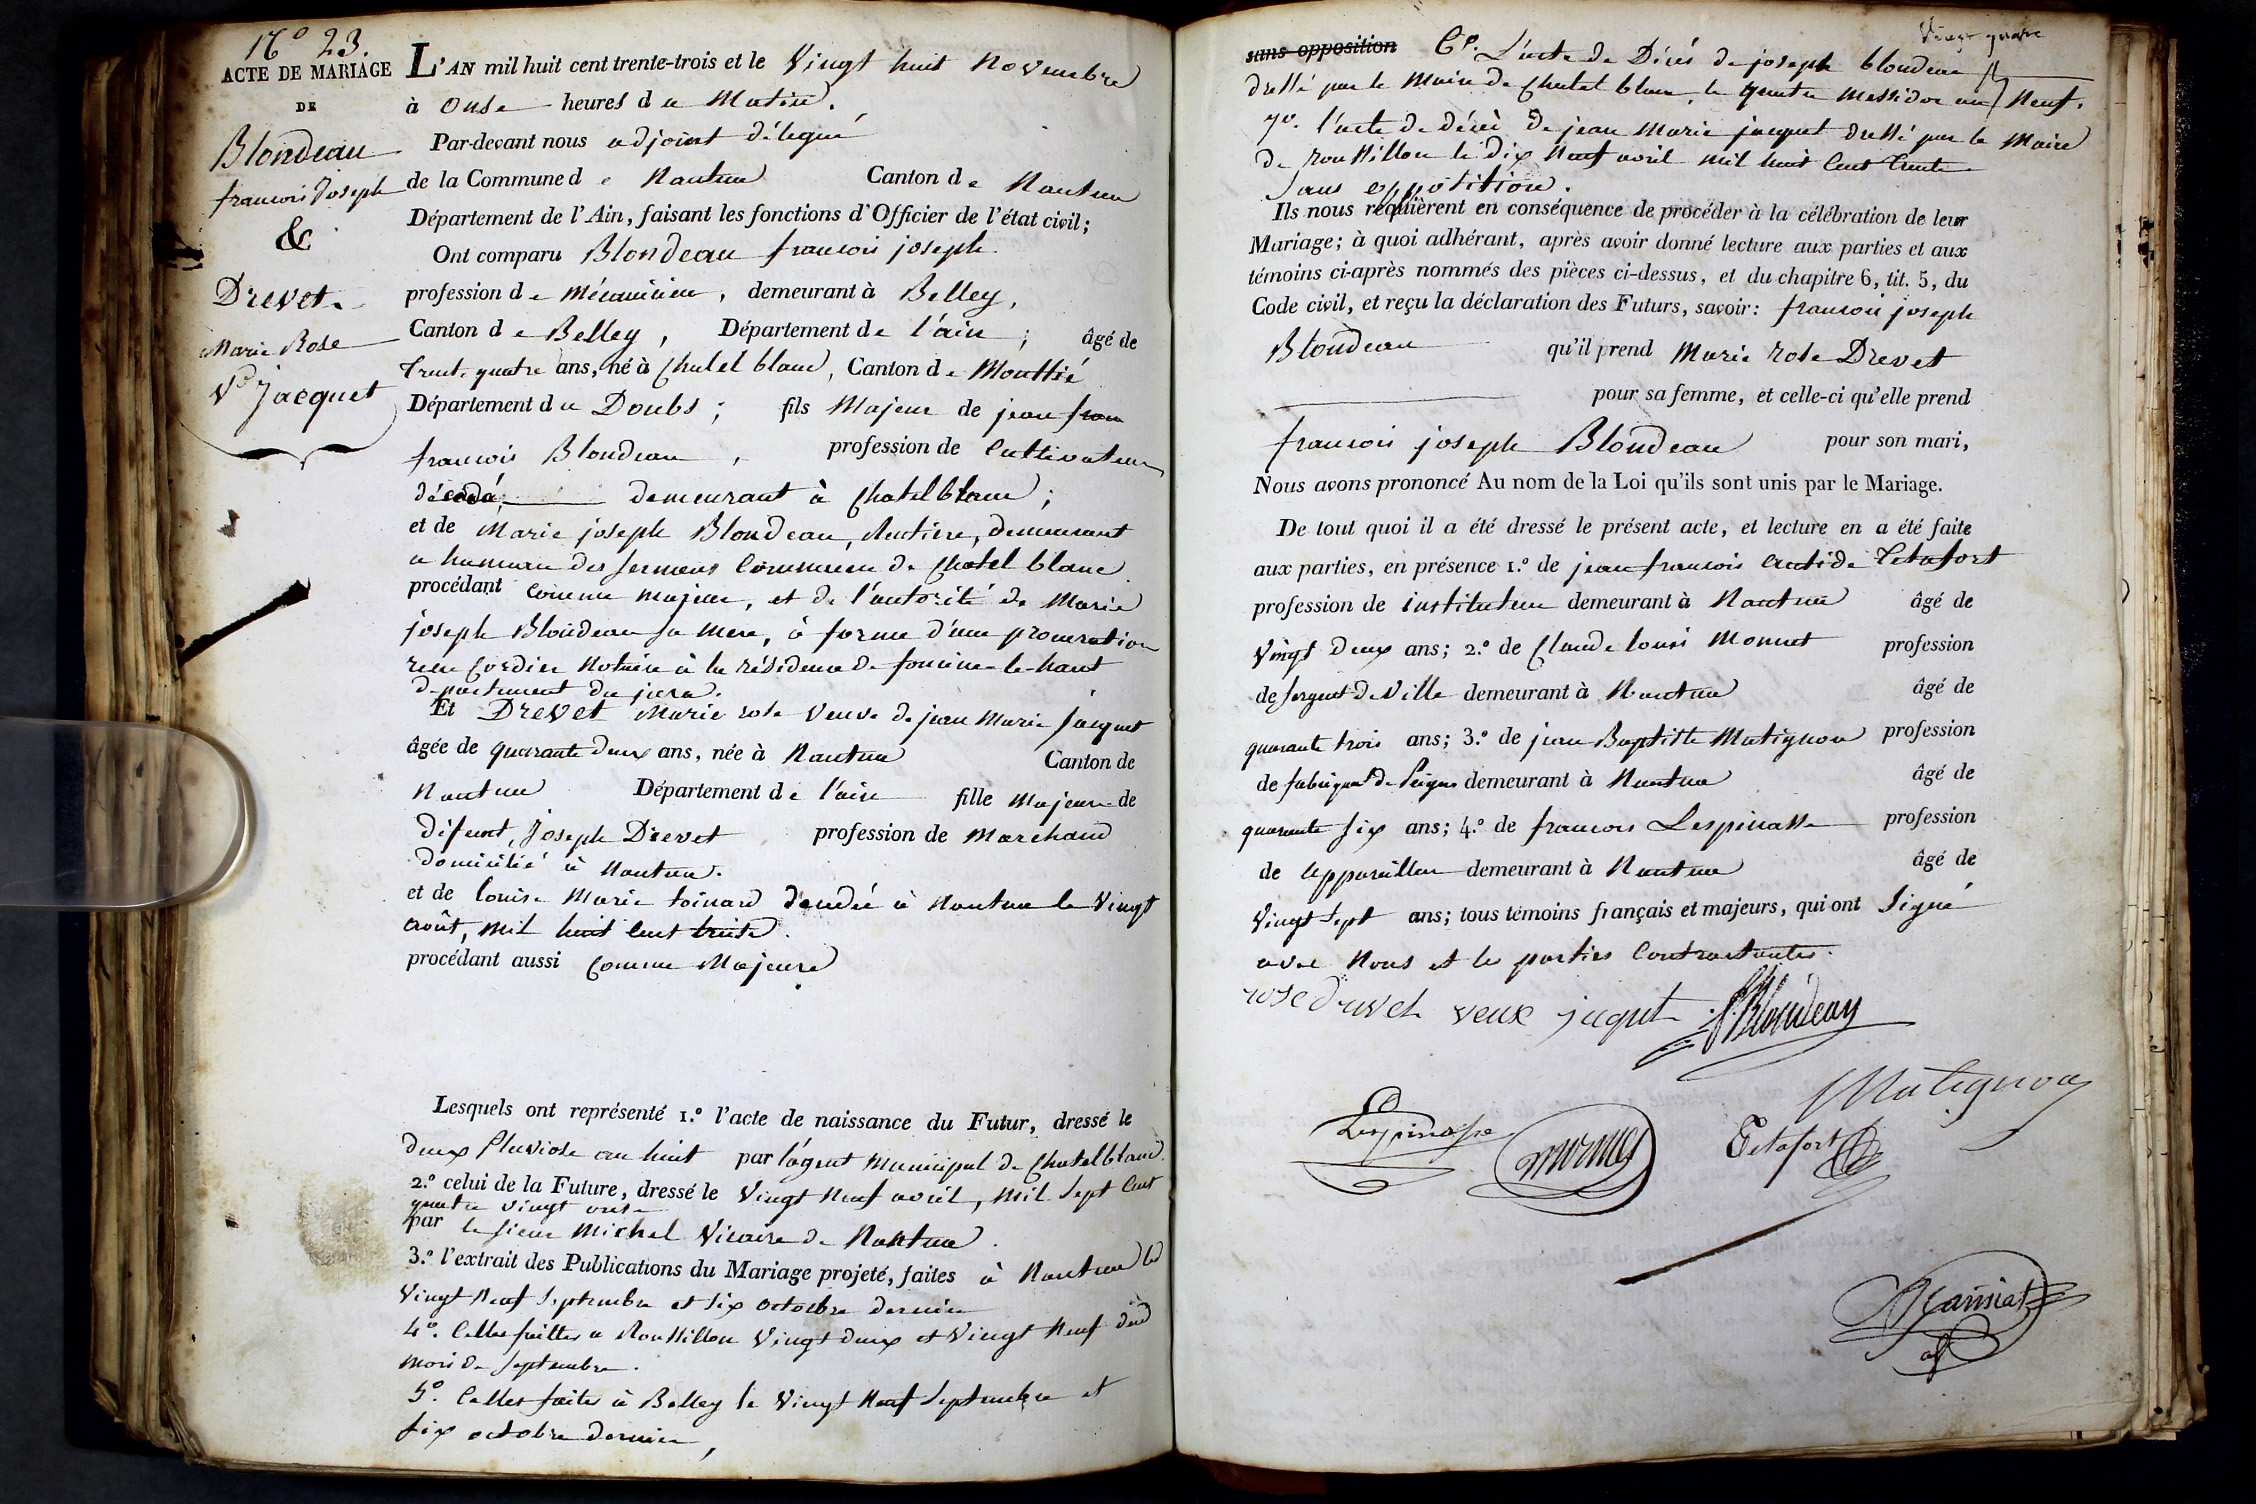 N.° 23.
ACTE DE MARIAGE
DE
Blondeau
francois Joseph
&
Drevet.
Marie Rose
Ve Jacquet
L'AN mil huit cent trente-trois et le Vingt huit Novembre
à Onse heures du Matin.
Par-devant nous adjoint délégué
de la Commune de Nantua Canton de Nantua
Département de l'Ain, faisant les fonctions d'Officier de l'état civil;
Ont comparu Blondeau francois joseph
profession de Mécanicien, demeurant à Belley,
Canton de Belley, Département de l'ain; âgé de
trente quatre ans, né à Chatel blanc, Canton de Mouthé
Département du Doubs; fils Majeur de jean fran
francois Blondeau, profession de Cultivateur
décédé, demeurant à Chatelblanc;
et de Marie joseph Blondeau, Rentière, demeurant
a hameau des Commune de Chatel blanc
procédant comme majeur, et de l'autorité de Marie
joseph Blondeau sa mere, à forme d'une procuration
reçu Cordier Notaire à la résidence de foncine-le-haut
département du jura.
Et Drevet Marie rose Veuve de jean Marie Jacquet
âgée de quarante deux ans, née à Nantua Canton de
Nantua Département de l'ain fille Majeure de
défunt, Joseph Drevet profession de Marchand
domicilié à Nantua.
et de louise Marie toinard décédée à Nantua le Vingt
août, mil huit cent trente.
procédant aussi comme Majeure
Lesquels ont représenté 1.° l'acte de naissance du Futur, dressé le
deux Pluviose an huit par l'agent Municipal de Chatelblanc.
2.° celui de la Future, dressé le Vingt Neuf avril, Mil Sept Cent
quatre vingt onse
par le sieur Michel Vicaire de Nantua.
3.° l'extrait des Publications du Mariage projeté, faites à Nantua les
Vingt Neuf Septembre et six octobre dernier
4°. Celles faittes a Roussillon Vingt deux et Vingt Neuf dud
Mois de Septembre.
5°. Celles faites à Belley le Vingt Neuf Septembre et
six octobre dernier,
Vingt quatre
sans opposition 6°. L'acte de Décès de joseph blondeau
dressé par le Maire de Chatel blanc, le quatre Messidor an Neuf.
7°. l'acte de décès de jean Marie jacquet dressé par le Maire
de roussillon le Dix Neuf avril mil huit Cent trente
Sans opposition.
Ils nous requièrent en conséquence de procéder à la célébration de leur
Mariage; à quoi adhérant, après avoir donné lecture aux parties et aux
témoins ci-après nommés des pièces ci-dessus, et du chapitre 6, tit. 5, du
Code civil, et reçu la déclaration des Futurs, savoir: francois joseph
Blondeau qu'il prend Marie rose Drevet
pour sa femme, et celle-ci qu'elle prend
francois joseph Blondeau pour son mari,
Nous avons prononcé Au nom de la Loi qu'ils sont unis par le Mariage.
De tout quoi il a été dressé le présent acte, et lecture en a été faite
aux parties, en présence 1.° de jean francois Tetafort
profession de instituteur demeurant à Nantua âgé de
Vingt deux ans; 2.° de Claude louis Monnet profession
de Sergent de Ville demeurant à Nantua âgé de
quarante trois ans; 3.° de jean Baptiste Matignon profession
de fabriquant de Peignes demeurant à Nantua âgé de
quarante six ans; 4.° de francois Lespinasse profession
de appareilleur demeurant à Nantua âgé de
Vingt Sept ans; tous témoins français et majeurs, qui ont Signé
avec Nous et les parties Contractantes.
rose druvet veuve jaquet f.Blondeau
Matignon
Lespinasse Monnet Tetafort